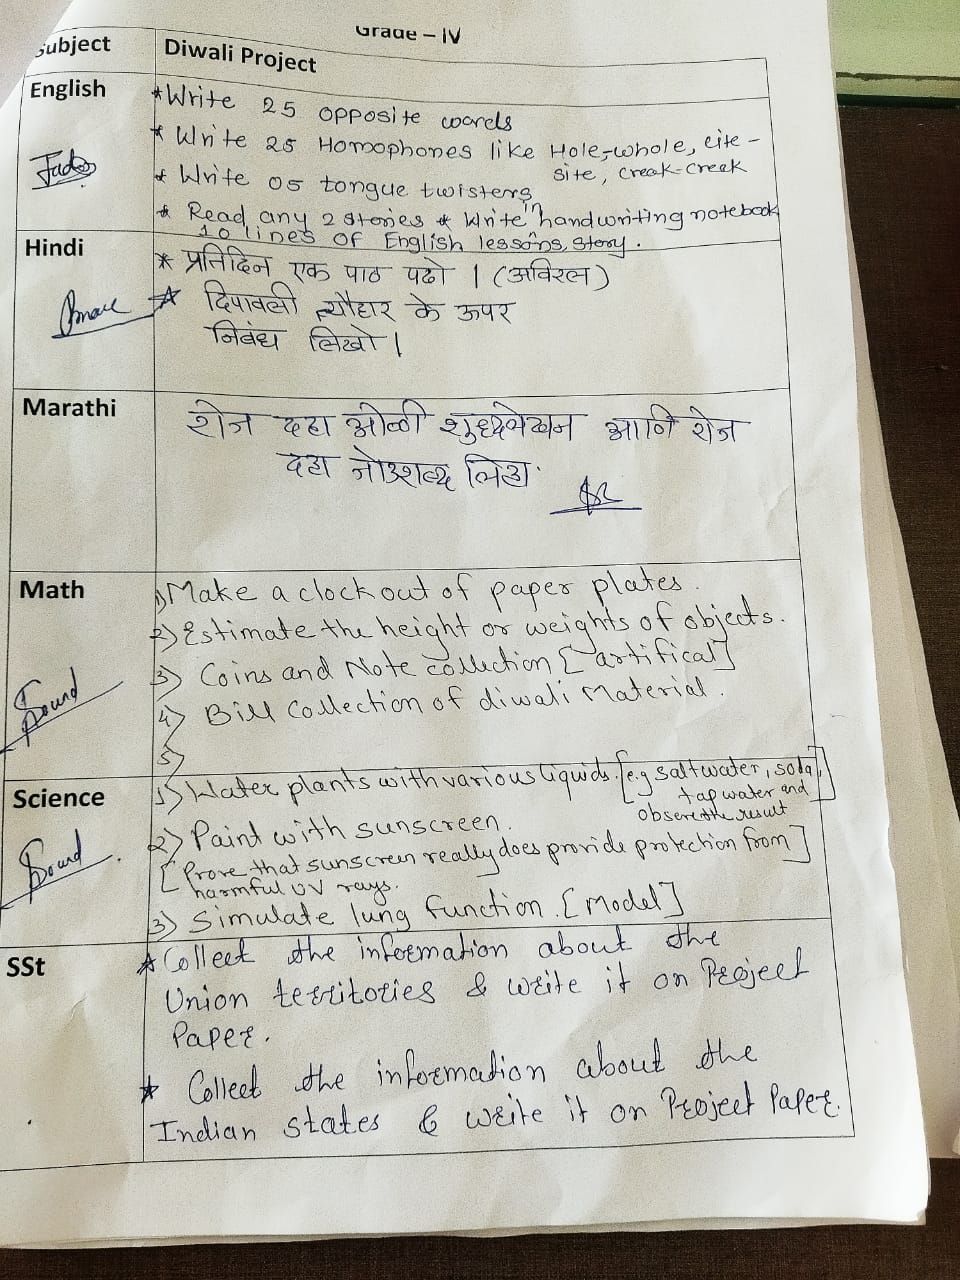 Grade – IV
Subject Diwali Project
English
* Write 25 opposite words
* Write 25 Homophones like Hole-whole, cite-
site, creak-creek
* Write 05 tongue twisters
* Read any 2 stories * Write in handwriting notebook
10 lines of English lessons, story.
Hindi
* प्रतिदिन एक पाठ पढो । (अविरल)
* दिपावली त्यौहार के ऊपर
निबंध लिखो ।
Marathi
रोज दहा ओळी शुध्दलेखन आणि रोज
दहा जोडशब्द लिहा.
Math
1) Make a clock out of paper plates.
2) Estimate the height or weights of objects.
3) Coins and Note collection [artifical]
4) Bill Collection of diwali Material.
5)
Science
1) Water plants with various liquids. [e.g saltwater, soda,
tap water and
obsere the result]
2) Paint with sunscreen.
[Prove that sunscreen really does provide protection from]
harmful UV rays.
3) Simulate lung function. [Model]
SSt
* Collect the information about the
Union territories & write it on Project
Paper.
* Collect the information about the
Indian states & write it on Project Paper.